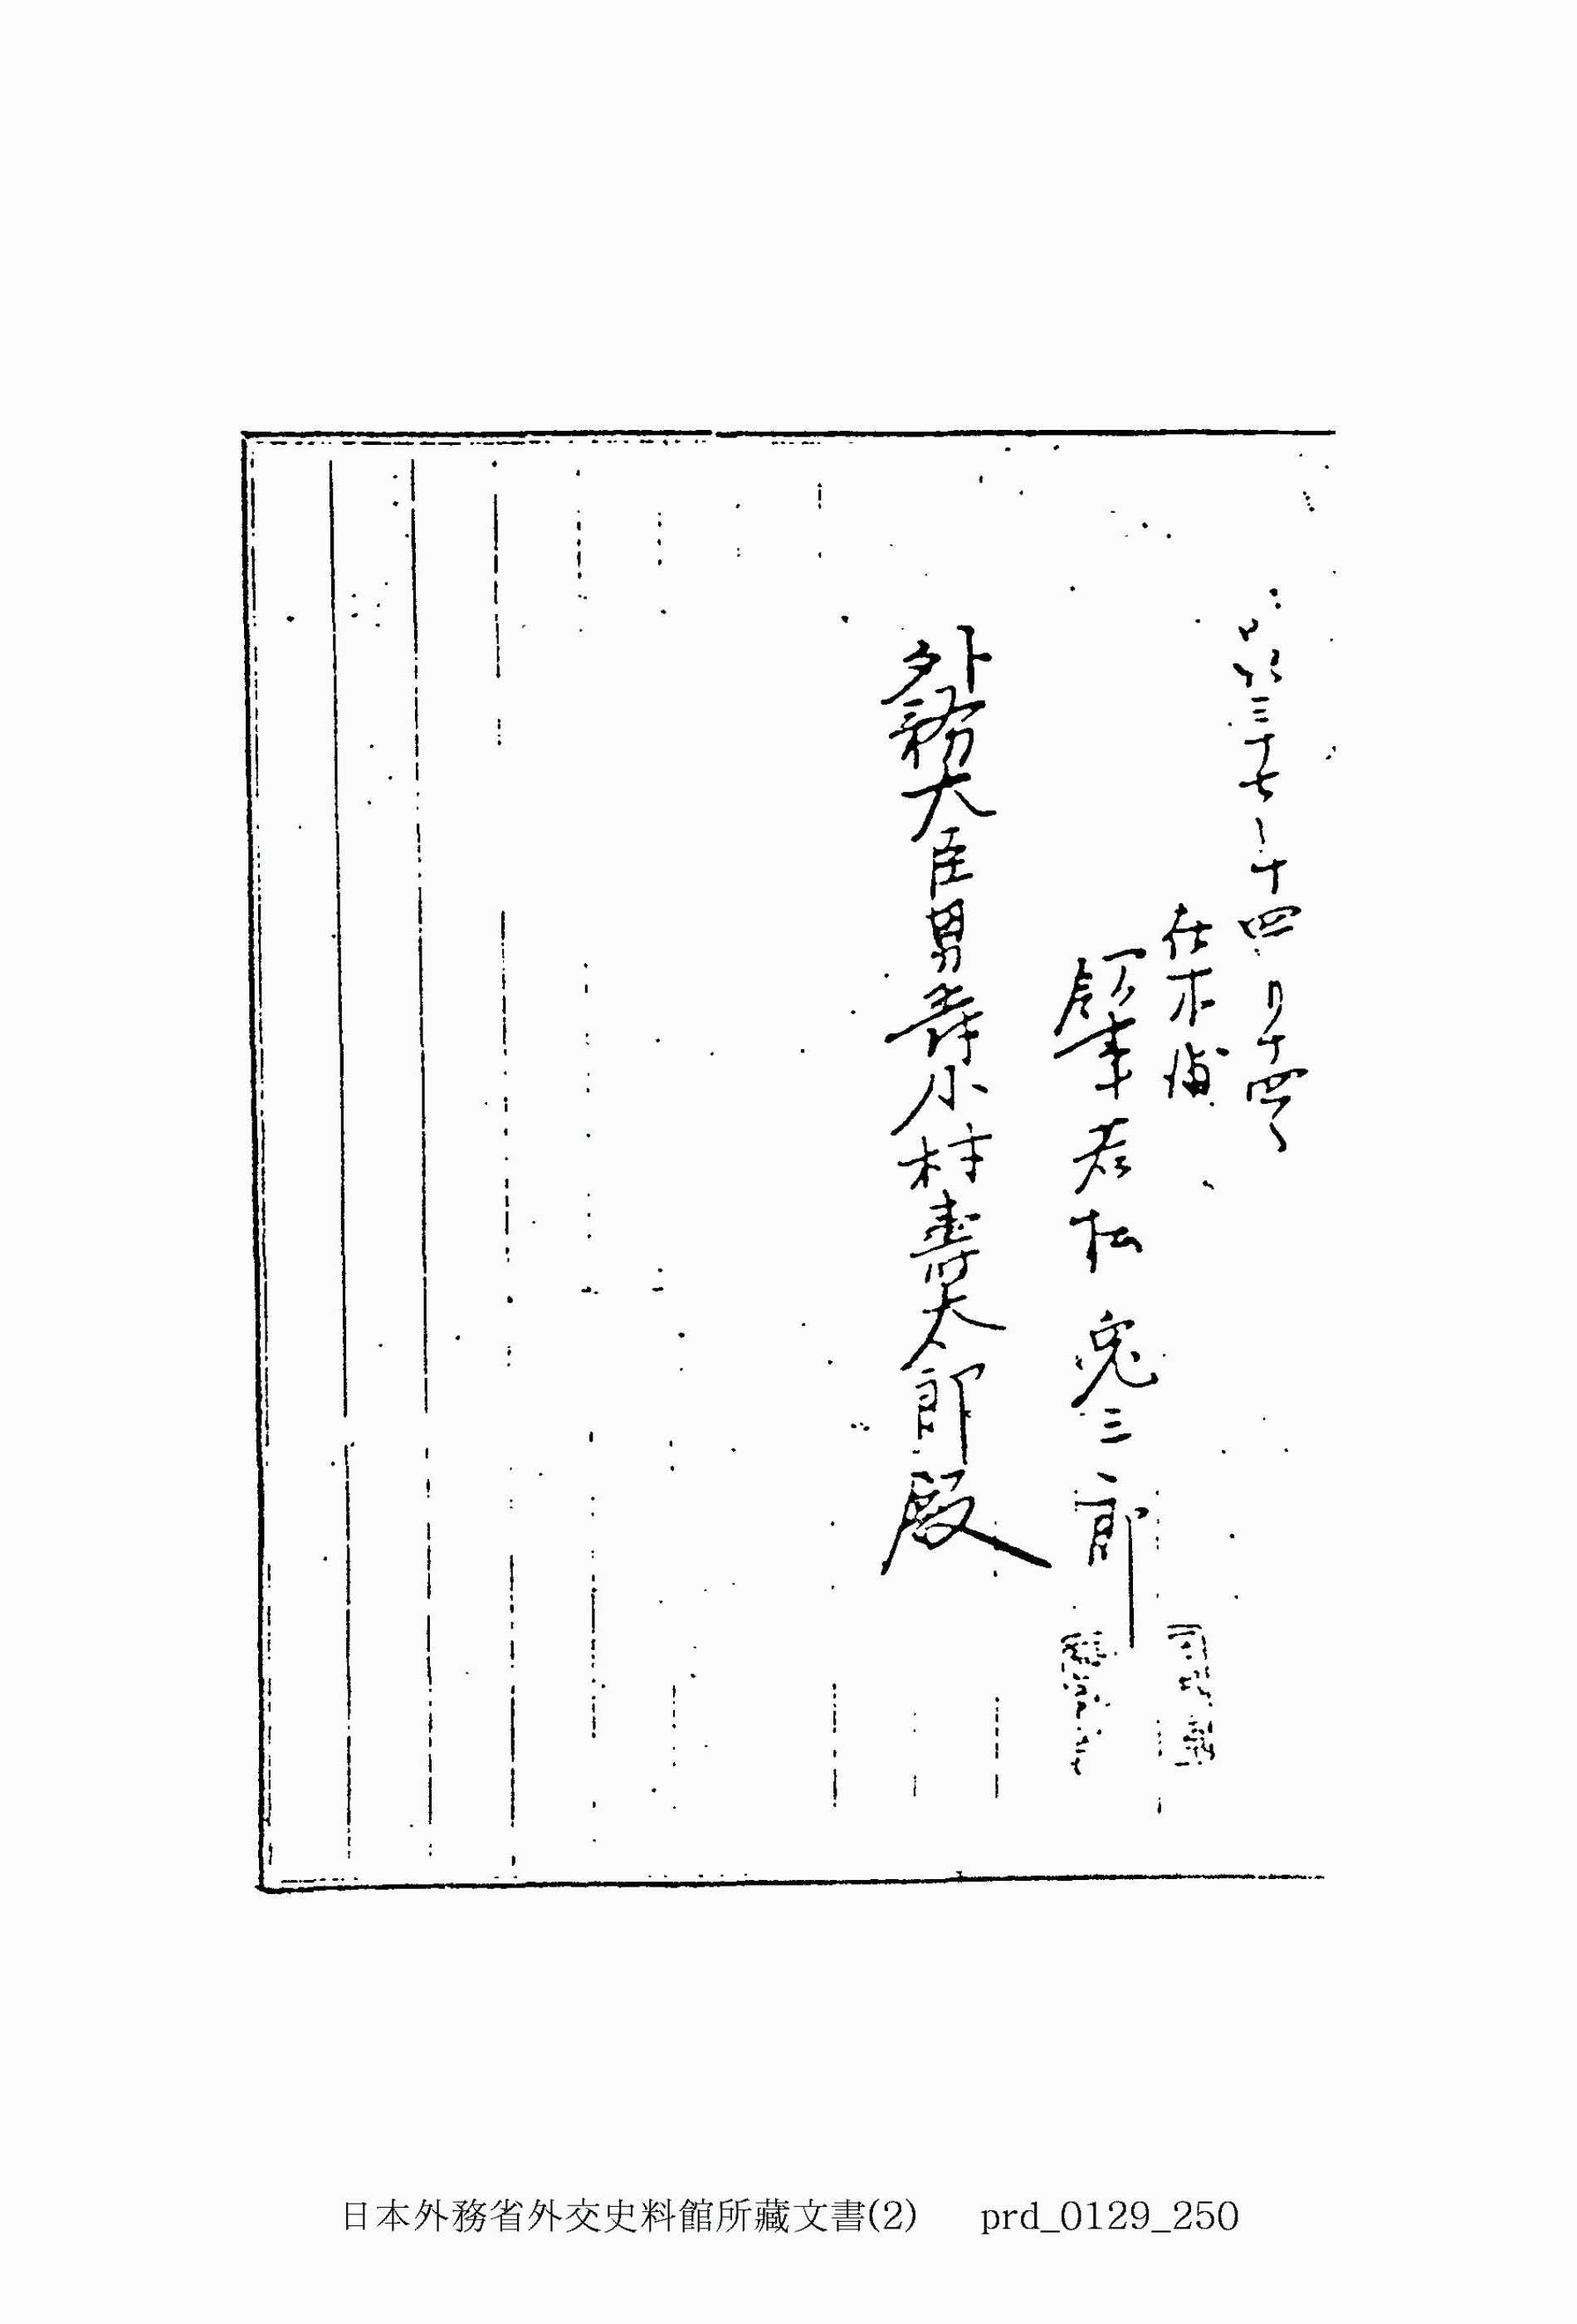 明治三十七年十四月十四日
在木浦
領事若松兎三郎
外務大臣男爵小村壽太郎殿
日本外務省外交史料館所藏文書(2) prd_0129_250